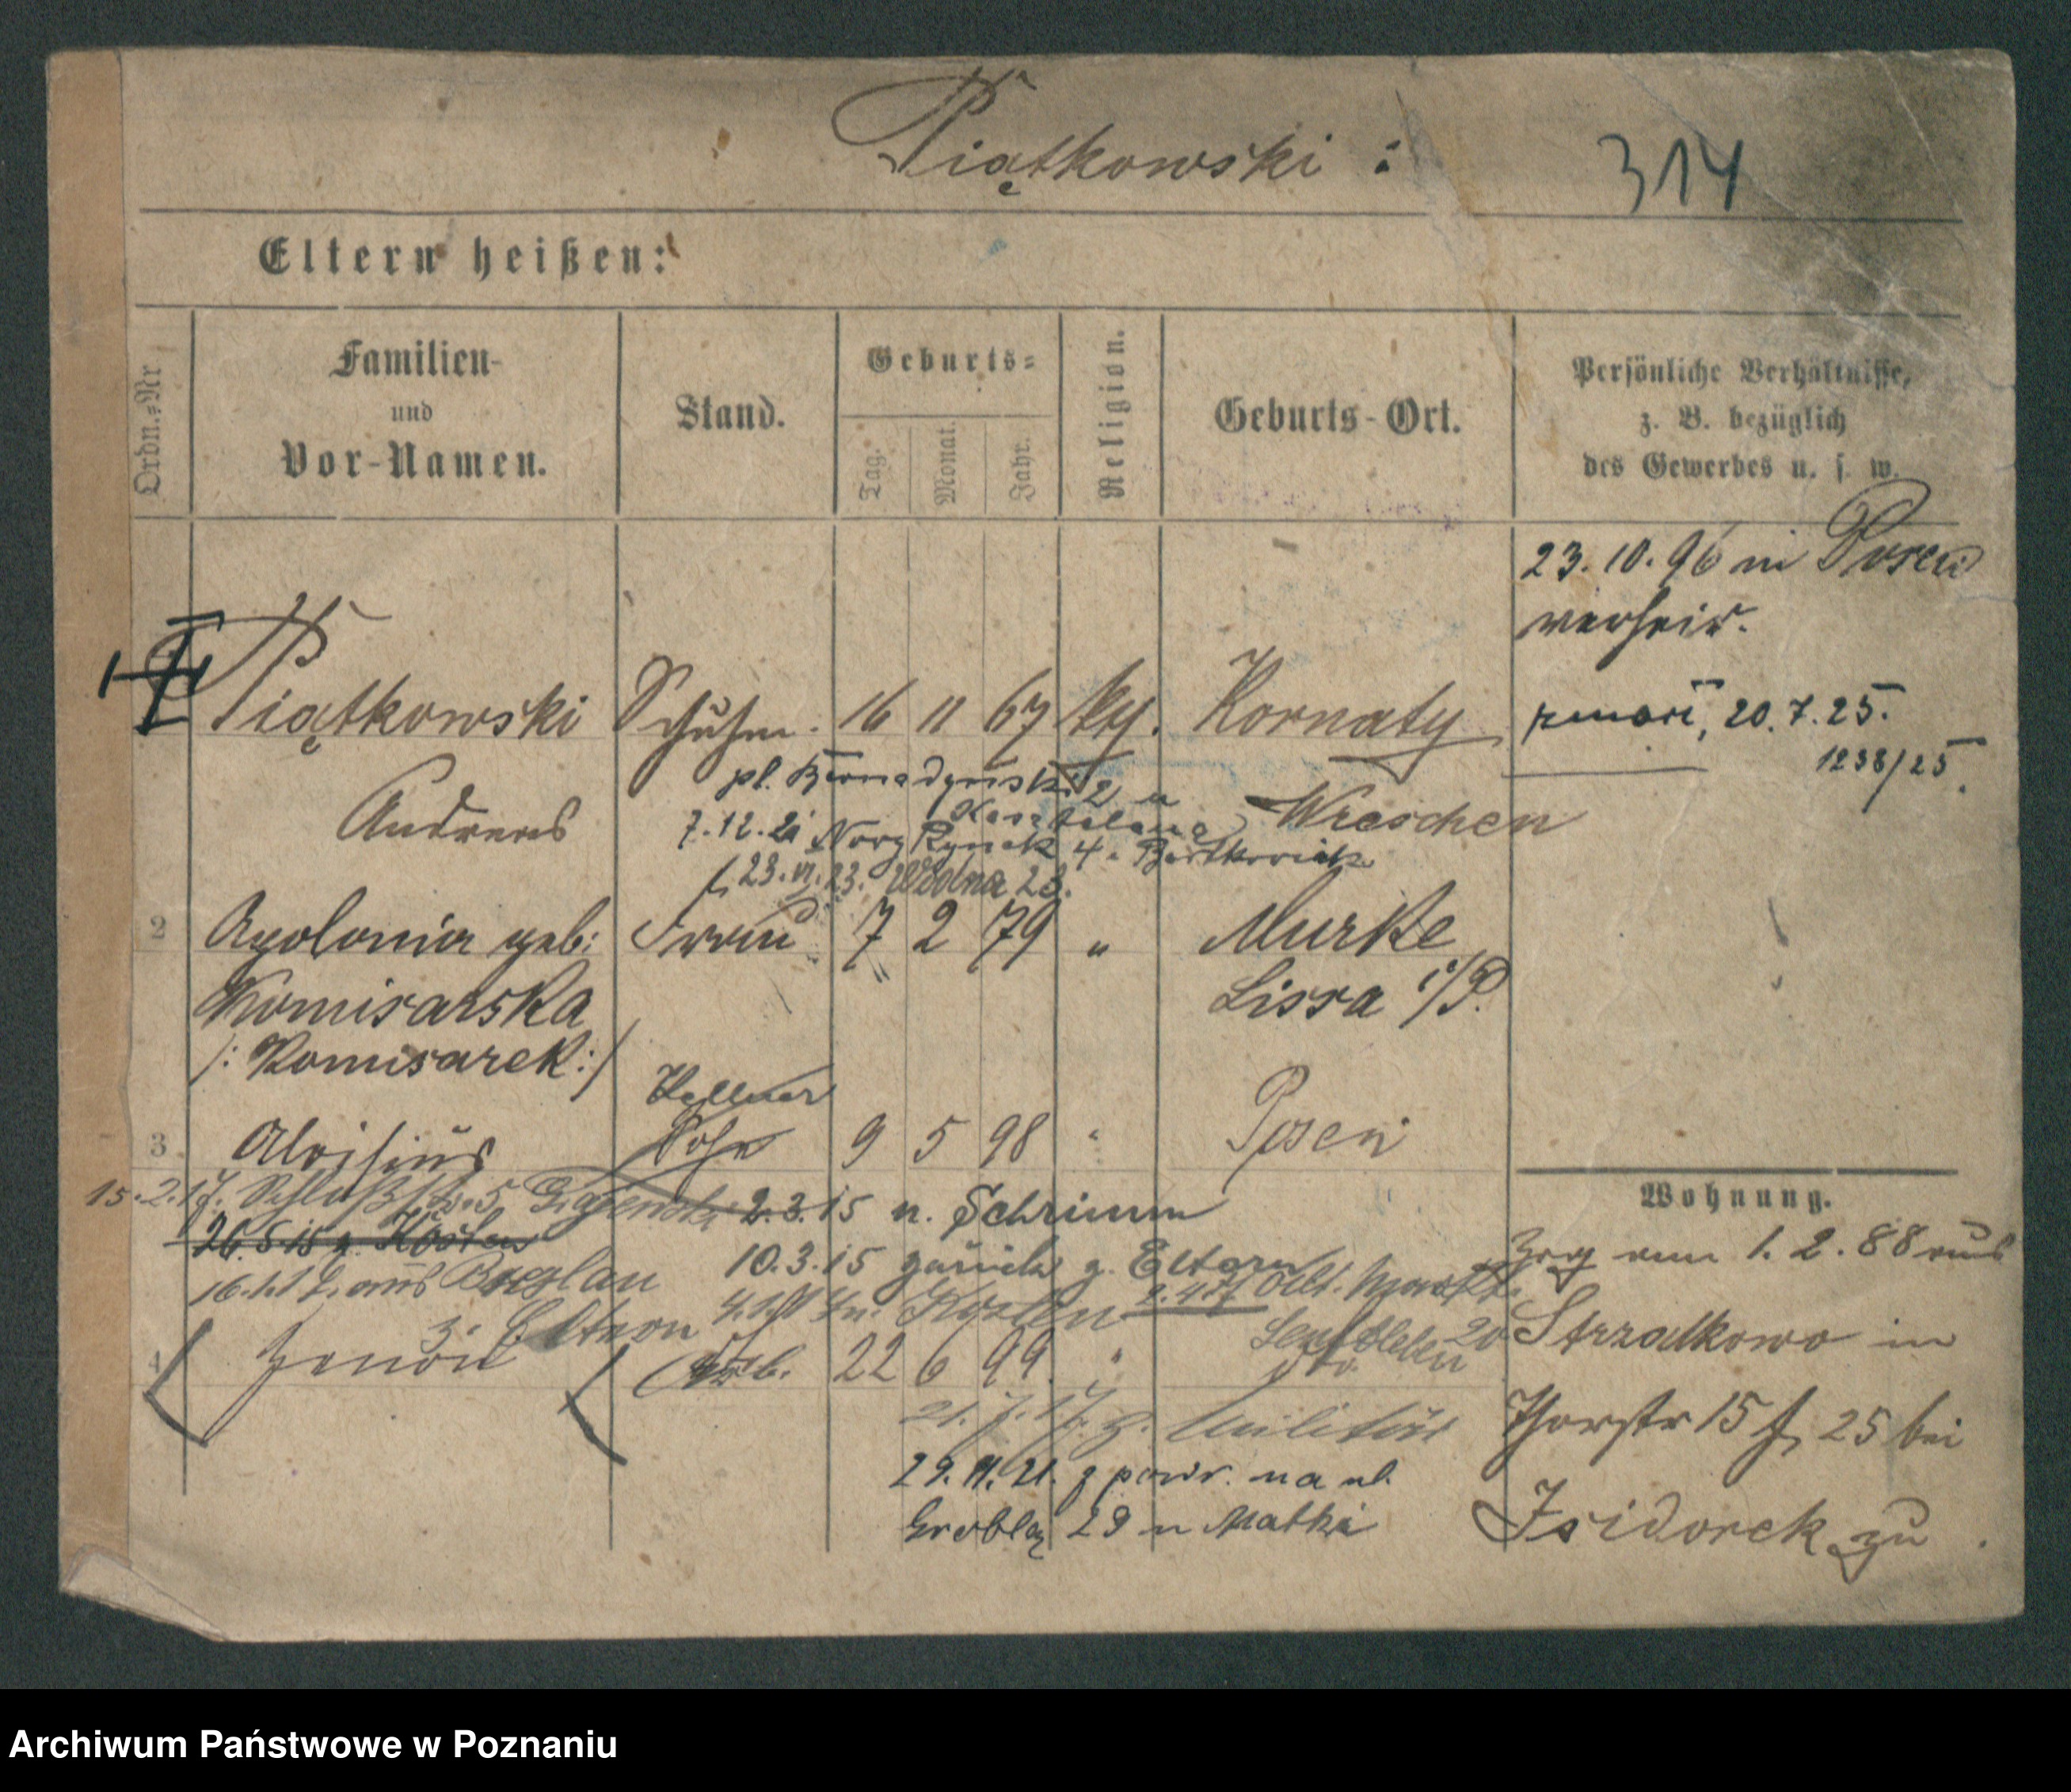 Piątkowski :
314
Eltern heißen:
Ordn.-Nr
Familien-
und
Vor-Namen.
Stand.
Geburts-
Tag.
Monat.
Jahr.
Religion.
Geburts-Ort.
Persönliche Verhältnisse,
z. B. bezüglich
des Gewerbes u. s. w.
23.10.96 in Posen
verheir.
Piątkowski Schuhm. 16 11 67 kg. Kornaty
zmarł, 20.7.25.
1238/25.
Andreas
Wreschen
pl. Bernadyński 2 u
Kasztelana
7.12.21 Nowy Rynek 4
23.VI.23. Wodna 23.
2 Apolonia geb: Frau 7 2 79 " Murke
Komisarska
Lissa i/P.
/: Komisarek :/
Kellner
3 Aloisius Sohn 9 5 98 " Posen
15.2.17. Schloßstr. 5
2.3.15 n. Schrimm
26.5.15 n. Kosten
10.3.15 zurück z. Eltern
aus Breslau
z. Eltern
Kosten
Alt. Markt
4 Zenon Arb. 22 6 99 "
21.7.17. z. Militär
29.11.21. z powr. na ul.
Groblą 29 u Matki
Wohnung.
Zog am 1.2.88 aus
Strzalkowo in
Thorstr 15 f, 25 bei
Isidorek zu
Archiwum Państwowe w Poznaniu